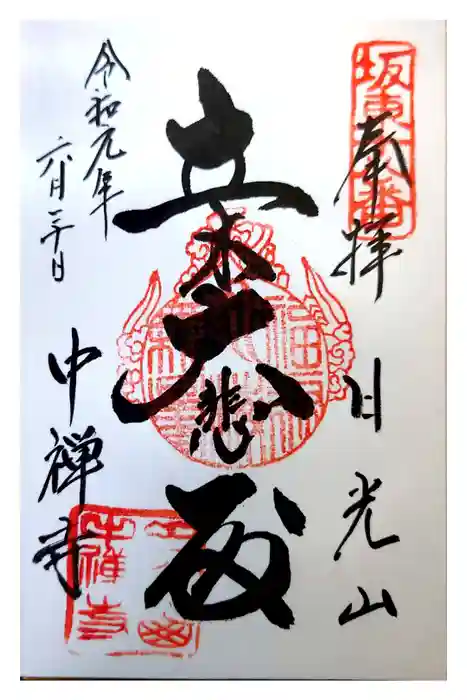 坂東十八番
奉拝
日光山
立木大悲殿
令和元年
六月
中禅寺